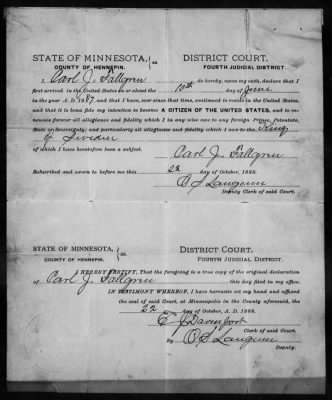 STATE OF MINNESOTA, } ss. DISTRICT COURT,
COUNTY OF HENNEPIN. FOURTH JUDICIAL DISTRICT.
I, Carl J. Fallgren do hereby, upon my oath, declare that I
first arrived in the United States on or about the 10th day of June
in the year A. D. 1887, and that I have, ever since that time, continued to reside in the United States,
and that it is bona fide my intention to become A CITIZEN OF THE UNITED STATES, and to re-
nounce forever all allegiance and fidelity which I in any wise owe to any foreign Prince, Potentate,
State or Sovereignty, and particularly all allegiance and fidelity which I owe to the King
of Sweden
of which I have heretofore been a subject.
Carl J. Fallgren
Subscribed and sworn to before me this 22 day of October, 1888.
Deputy Clerk of said Court.
STATE OF MINNESOTA, } ss. DISTRICT COURT,
COUNTY OF HENNEPIN. FOURTH JUDICIAL DISTRICT.
I HEREBY CERTIFY, That the foregoing is a true copy of the original declaration
of Carl J. Fallgren this day filed in my office.
IN TESTIMONY WHEREOF, I have hereunto set my hand and affixed
the seal of said Court, at Minneapolis in the County aforesaid, the
22 day of October, A. D. 1888.
E J Davenport
Clerk of said Court.
By
Deputy.